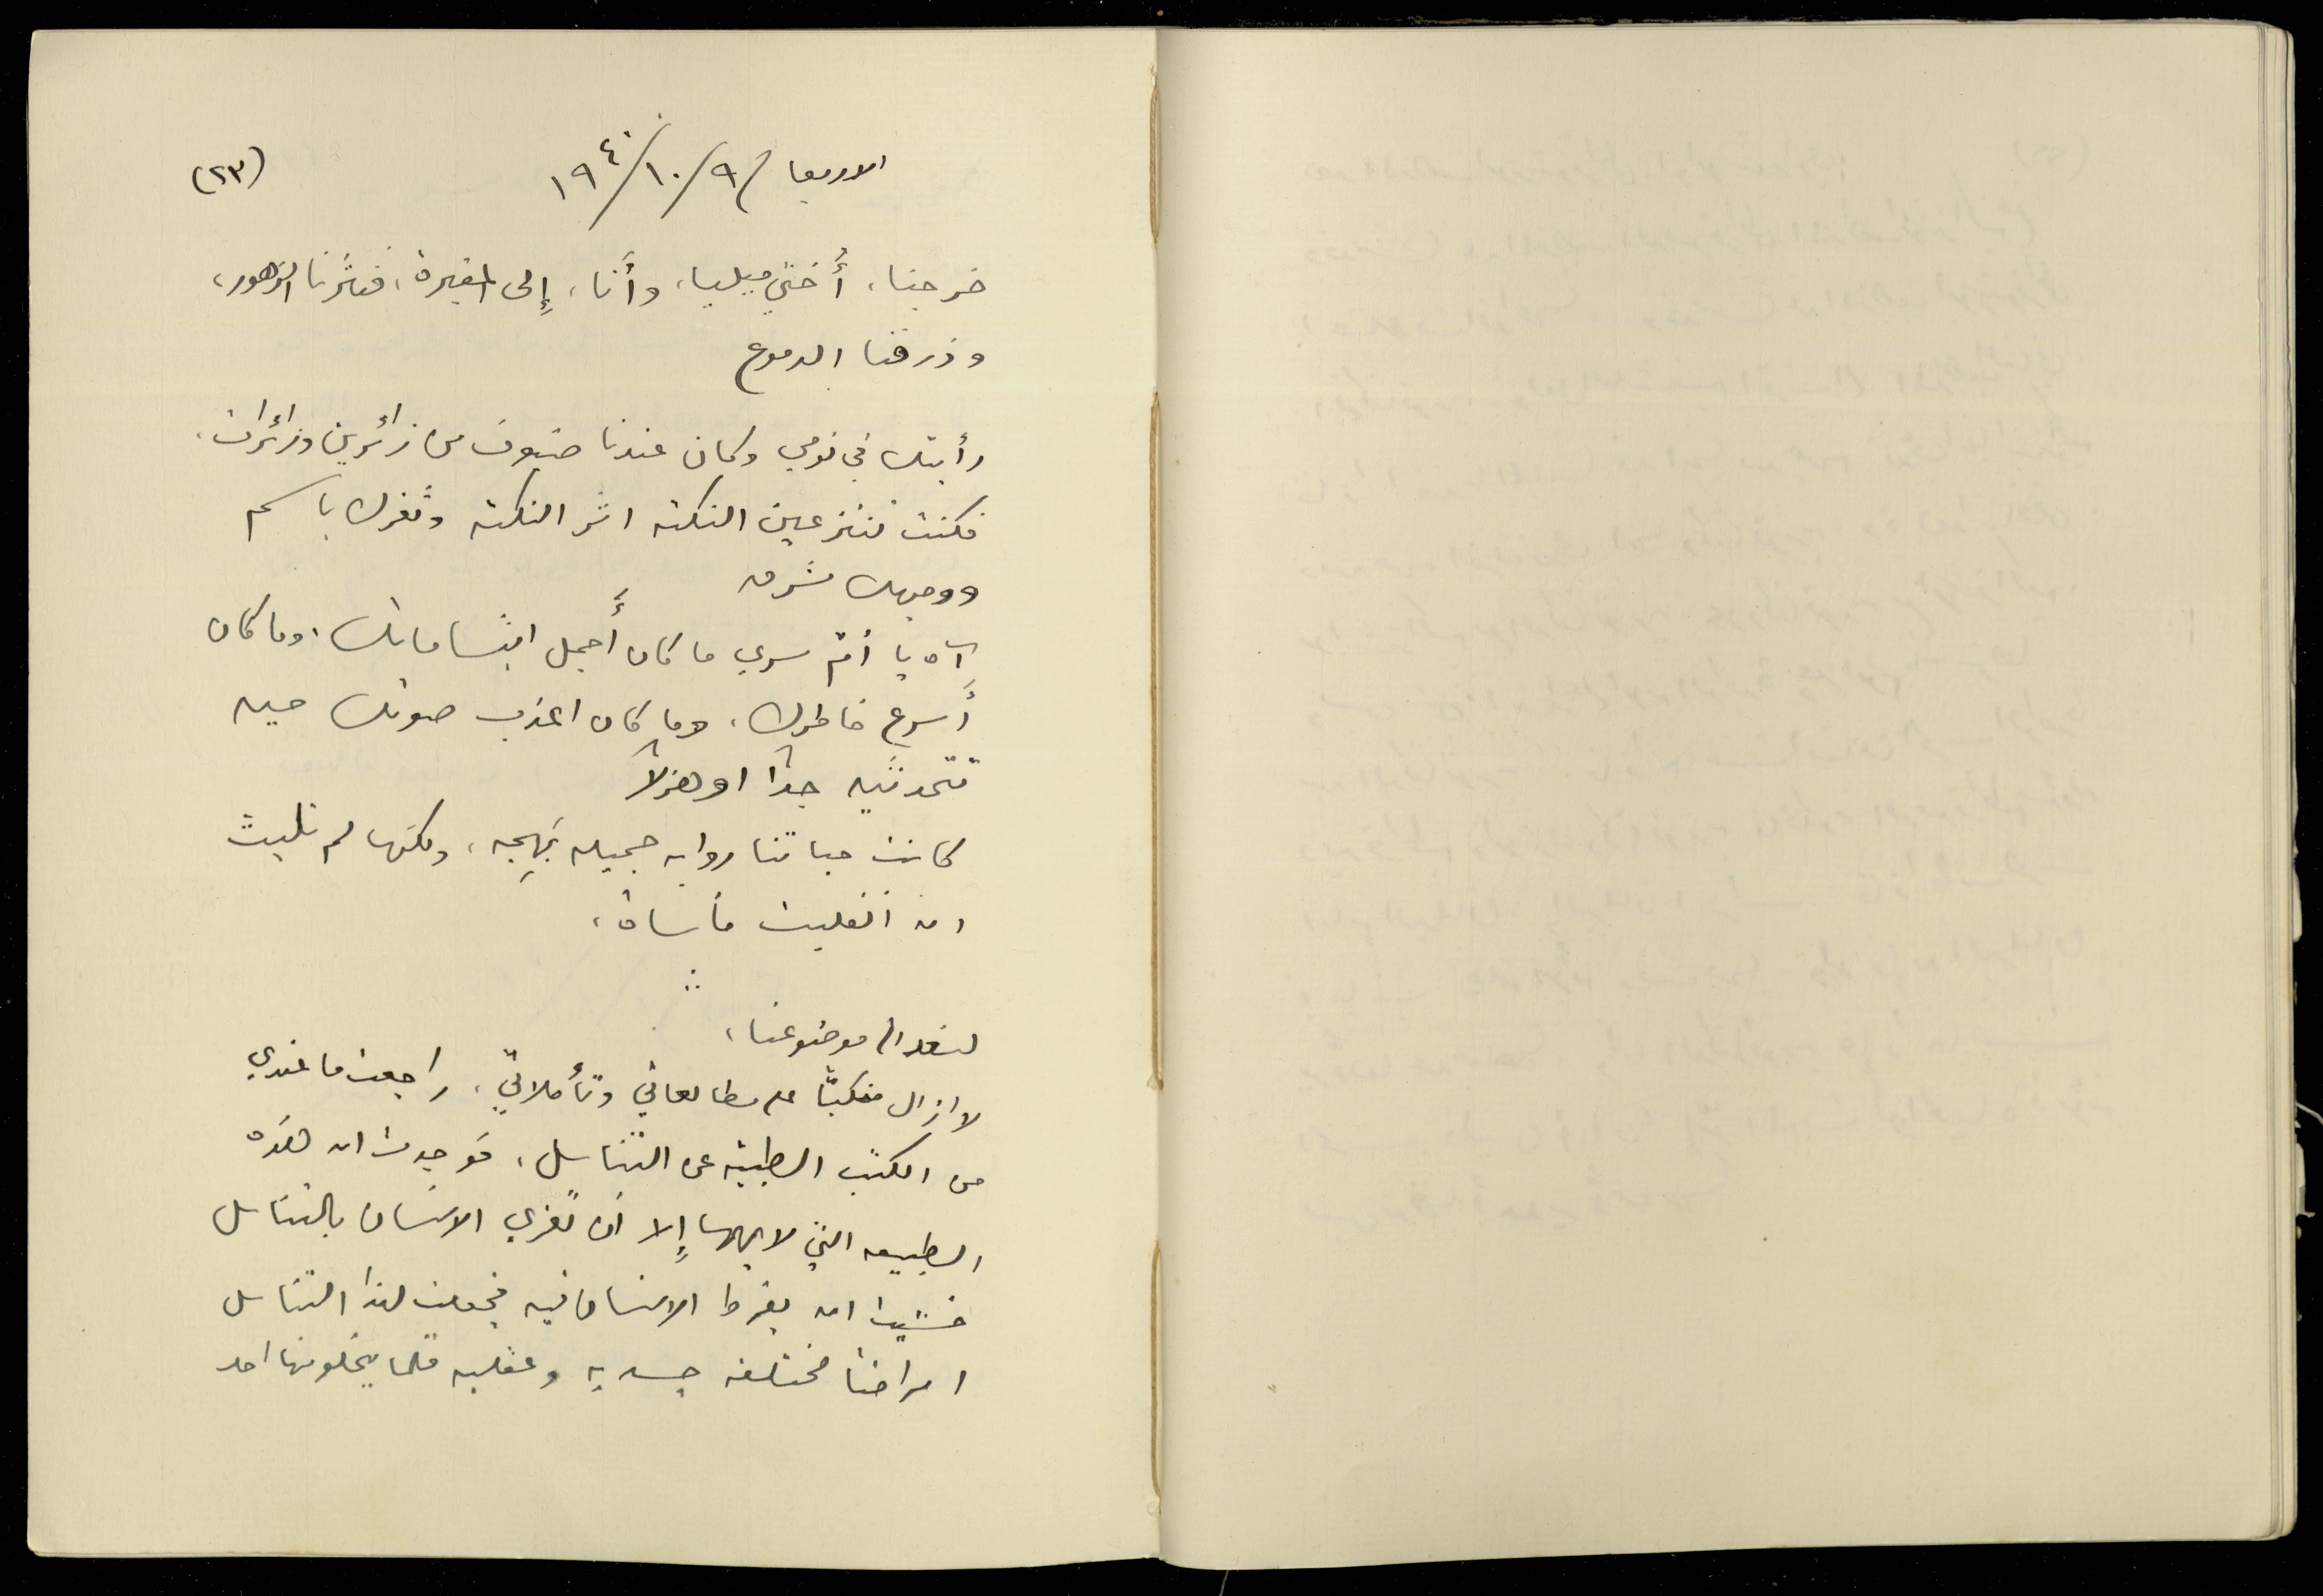 (٢٣)
الاربعا ٩/١٠/١٩٤٠
خرجنا، أُختي ميليا، وأَنا، إِلى المقبرة، فنثَرنا الزهور،
وذرفنا الدموع
رأيتك في نومي وكان عندنا ضيوف من زائرين وزائرات،
فكنت تنتزعين النكتة اثر النكتة وثغرك باسم
ووجهك مشرق
آه يا أم سري ما كان أَجمل ابتساماتك، وما كان
أَسرع خاطرك، وما كان اعذب صوتك حين
تتحدثين جداً او هزلاً
كانت حياتنا رواية جميلة بَهِجه، ولكنها لم تلبث
ان انقلبت مأساة،
لنعد الى موضوعنا،
لا ازال منكباً على مطالعاتي وتأملاتي، راجعت ما عندي
من الكتب الطبية عن التناسل، فوجدت ان هذه
الطبيعه التي لا يهمها إِلا أن تغري الانسان بالتناسل
خشيت ان يفرط الانسان فيه فجعلت لهذا التناسل
امراضاً مختلفه جسديه وعقليه قلما يخلو منها احد